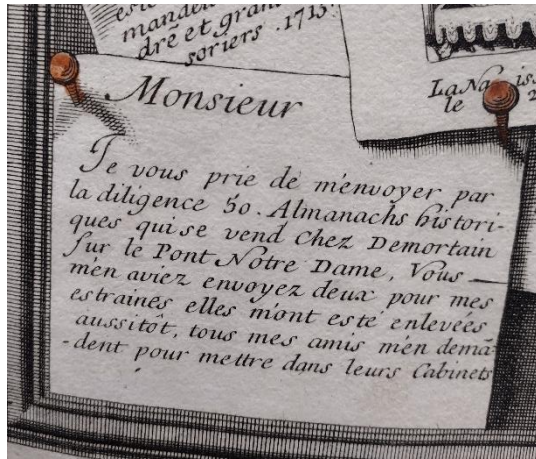 este
mandeu
dre et gran
soriers. 1713.
La Na iss
le 2
Monsieur
Je vous prie de m'envoyer par
la diligence 50. Almanachs histori-
ques qui se vend Chez Demortain
sur le Pont Notre Dame, Vous
m'en aviez envoyez deux pour mes
estraines elles m'ont esté enlevées
aussitôt, tous mes amis m'en demā-
-dent pour mettre dans leurs Cabinets